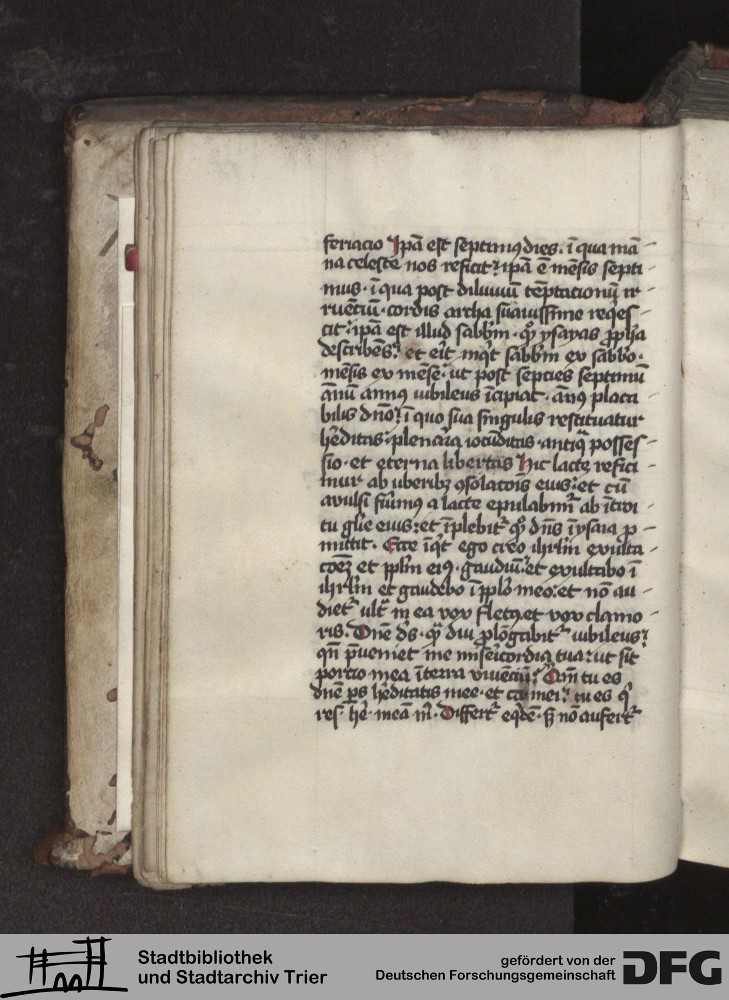 feriacio Ipā est septimꝯ dies. ī qua mā
na celeste nos reficit: ipā ē mēsis septi
mus · ī qua post diluuiū tēptationū ir
ruētiū · cordis archa suauissime reqes
cit: ipā est illud sabbm̄ · qd̄ ysayas ꝓpha
describēs: et erit inqt sabbm̄ ex sabbo ·
mēsis ex mēse · ut post septies septimū
ānū annꝯ iubileus īcipiat · anꝯ placa
bilis dn̄o: ī quo sua singulis restituatur
hēditas · plenaria iocūditas · antiq̄ posses
sio · et eterna libertas Hic lacte refici
mur ab uberibꝫ ꝯsolatōis eius: et cū
auulsi fuīmꝯ a lacte epulabimr̄ ab ītroi
tu glīe eius: et īplebit qd̄ dn̄s ī ysaia ꝓ
mittit · Ecce īqt ego creo ihrlm̄ exulta
cōeꝫ et pplm̄ eiꝯ · gaudiū: et exultabo ī
ihrlm̄ et gaudebo ī pplo meo: et nō au
diet᷑ ult᷑ in ea vox fletꝯ et vox clamo
ris. Dn̄e ds̄ · qm̄ diu ꝓlōgabit᷑ iubileus:
qn̄ p̄ueniet me misericordia tua: ut sit
portio mea ī terra viuēciū: Qm̄ tu es
dn̄e ps hēditatis mee · et calicis mei: tu es q̇
res · hē · meā m̄ · Differt᷑ eqdē · sꝫ nō aufert᷑
Stadtbibliothek
und Stadtarchiv Trier
gefördert von der
Deutschen Forschungsgemeinschaft
DFG